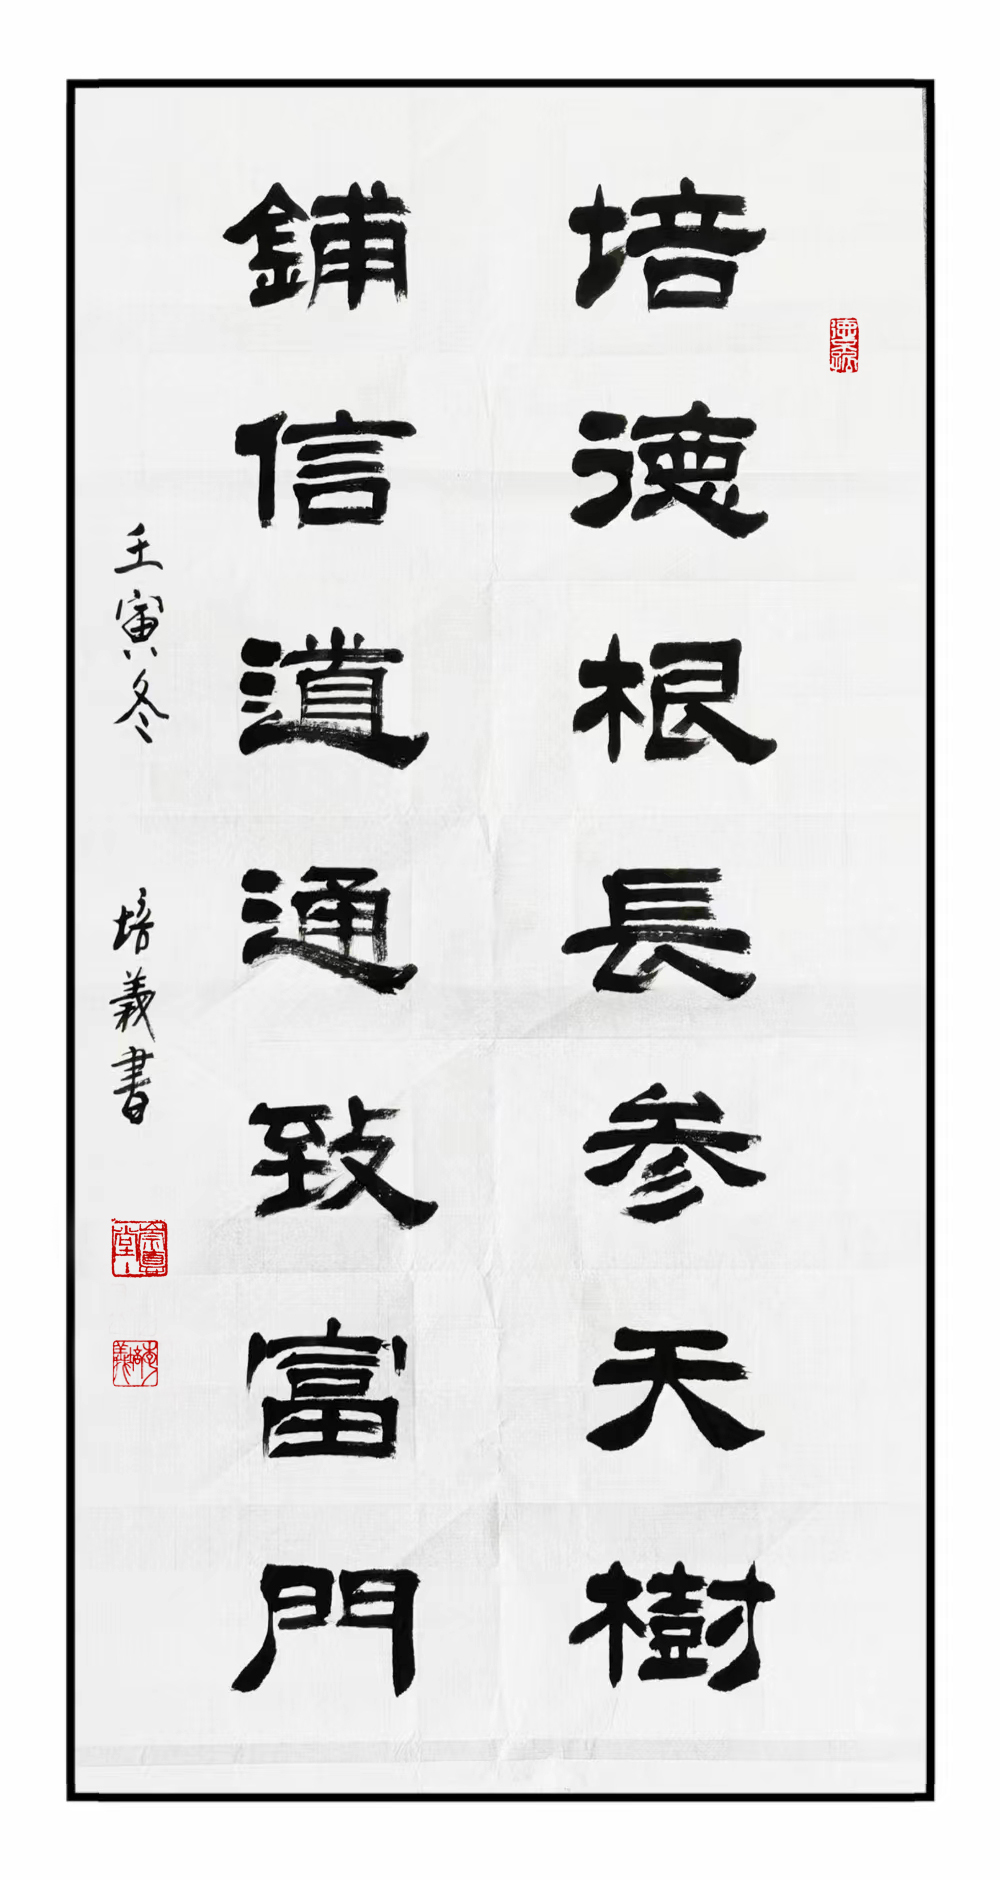 培德根長参天樹
鋪信道通致富門
壬寅冬
培義書